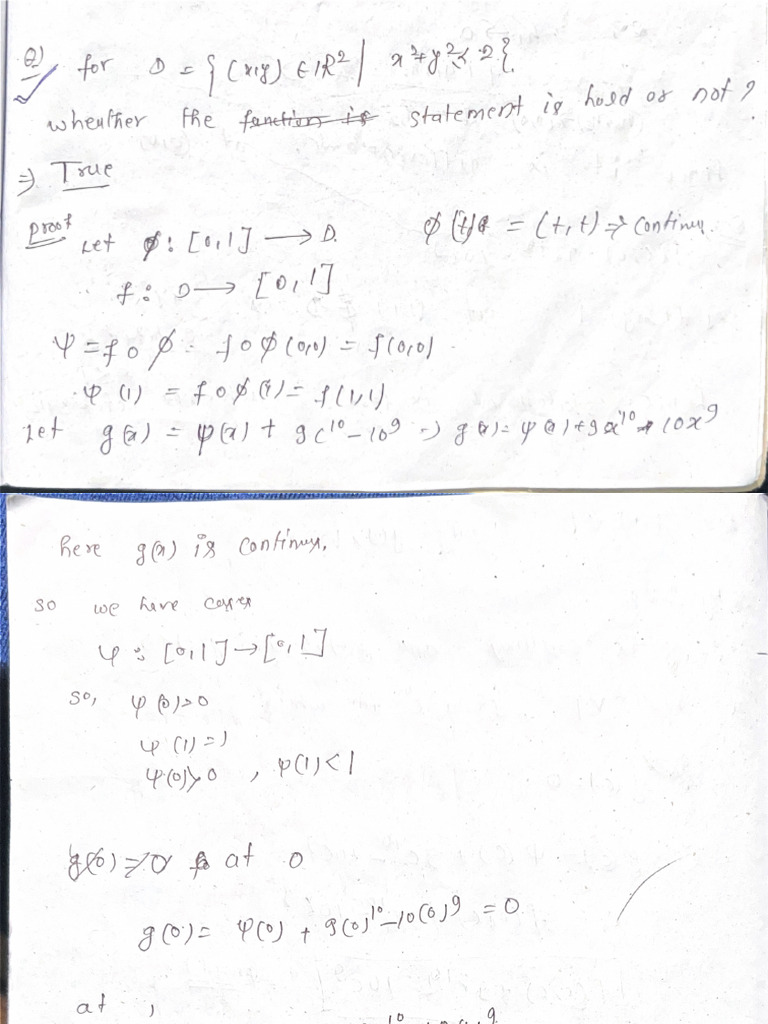 Q) for D = { (x,y) ∈ IR² | x²+y² < 2 }.
wheather the function is statement is hold or not ?
⇒ True
Proof Let ϕ : [0,1] ⟶ D. ϕ(t) = (t,t) ⇒ continu.
f : D ⟶ [0,1]
ψ = f o ϕ = f o ϕ (0,0) = f(0,0)
ψ (1) = f o ϕ (1) = f(1,1)
Let g(x) = ψ(x) + 9c¹⁰ - 10⁹ ⇒ g(x) = ψ(x) + 9x¹⁰ - 10x⁹
here g(x) is continus,
so we have cases
ψ : [0,1] → [0,1]
so, ψ(0)=0
ψ (1) = 1
ψ(0)>0 , ψ(1)<1
g(0) ⇒ 0 at 0
g(0) = ψ(0) + 9(0)¹⁰ - 10(0)⁹ = 0
at 1